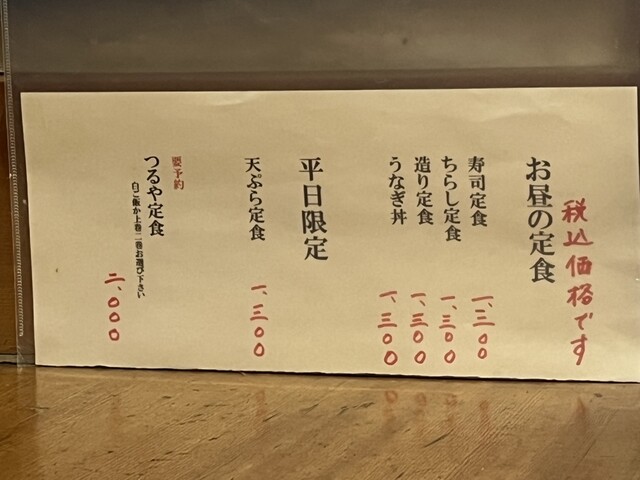 税込価格です
お昼の定食
寿司定食 一、三〇〇
ちらし定食 一、三〇〇
造り定食 一、三〇〇
うなぎ丼 一、三〇〇
平日限定
天ぷら定食 一、三〇〇
要予約
つるや定食 二、〇〇〇
白ご飯か上巻二巻お選び下さい